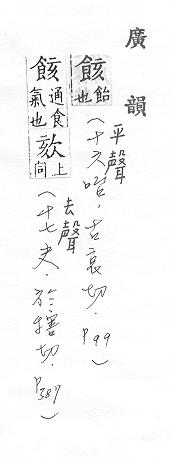 廣韻
䬵飴也
(平聲 十六咍, 古哀切. P99)
䬵通食氣也欬上同
(去聲 十七夬. 於犗切. P387)